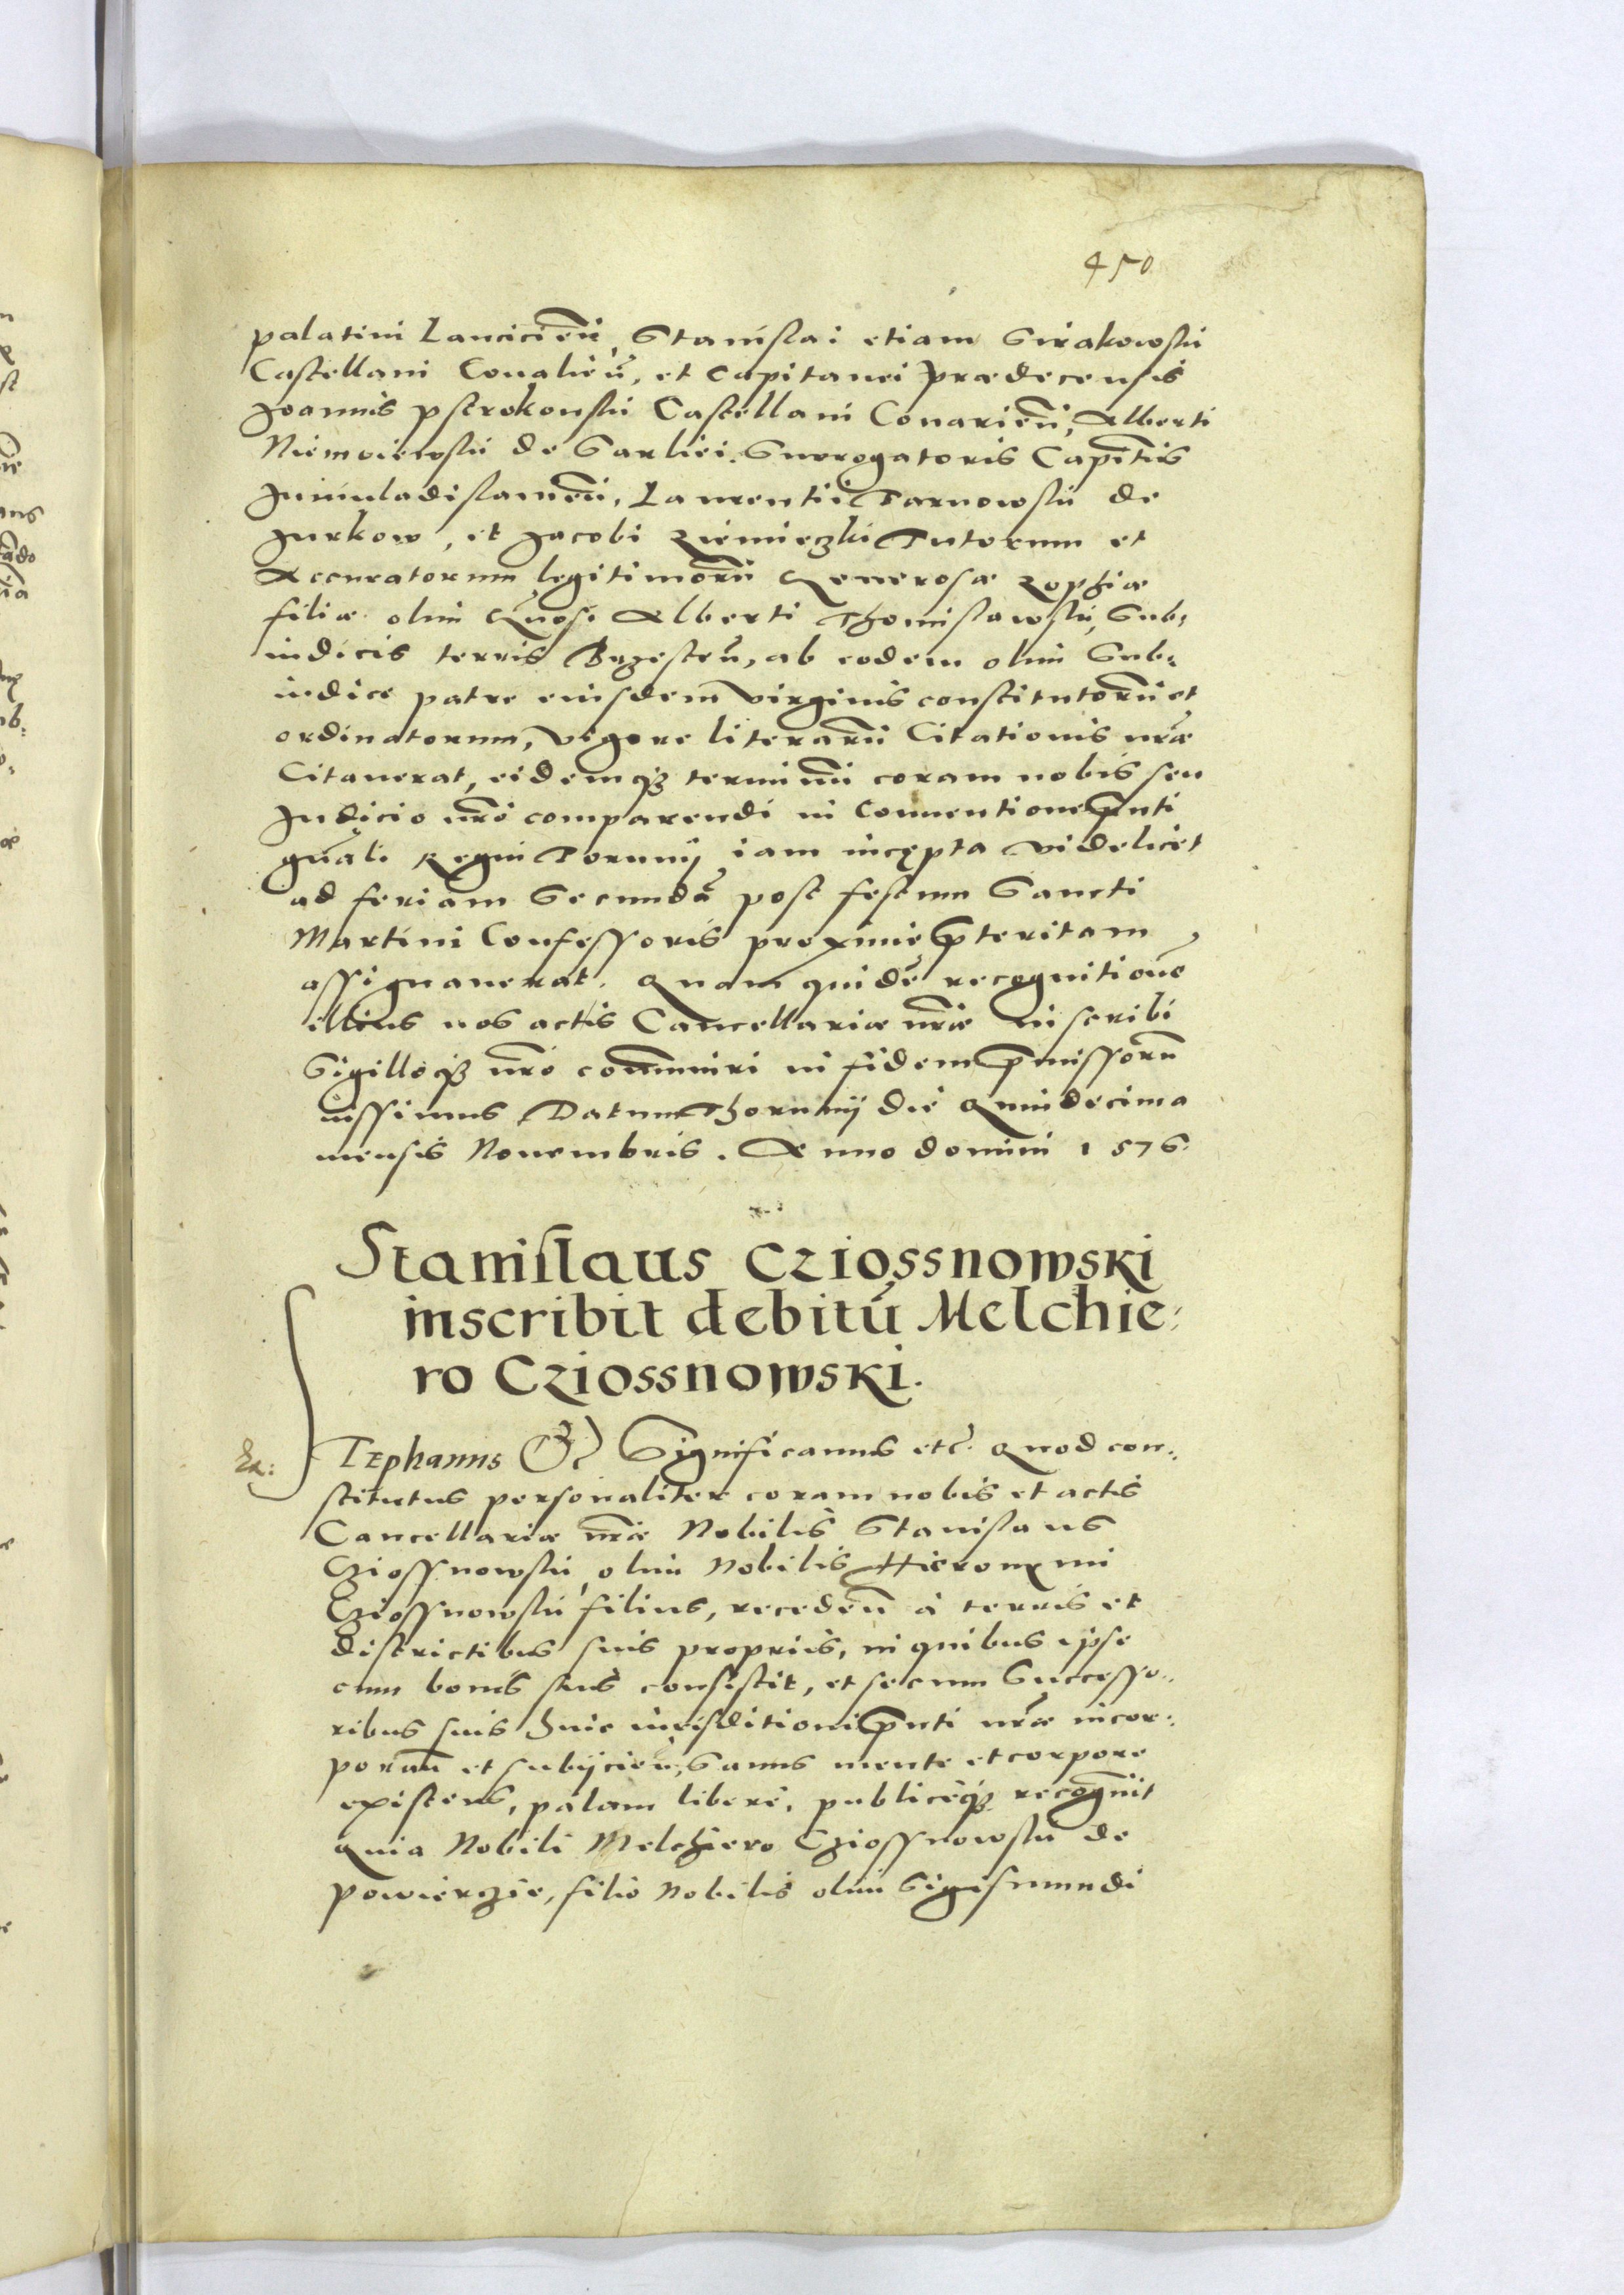 450
palatini Lancicień, Stanislai etiam Sirakowski
Castellani Coualień, et Capitanei Prædecensis
Joannis pstrokonski Castellani Conarień, Alberti
Niemoiewski de Sarliei. Surrogatoris Capitñis
Juniuladislauień, Laurentii Tarnowski de
Jurkow, et Jacobi Ziemieczki Tutorum et
Accuratorum legitimorū Generosæ Zophiæ
filiæ olim Gñosi Alberti Thomislawski, Sub,
iudicis terris Brzesteń, ab eodem olim Sub,
iudice patre eiusdem virginis constitutorū et
ordinatorum, vigore literarū Citationis nr̃æ
Citauerat, eidemq₃ terminū coram nobis seu
Judicio nr̃o comparendi in Conuentione pñti
gñali Regni Torunij iam incępta videlicet
ad feriam Secundā post festum Sancti
Martini Confessoris proxime pteritam
assignauerat. Quam quidē recognitionē
illius nos actis Cancellariæ nr̃æ inscribi
Sigilloq₃ nr̃o com̃muniri in fidem pmissorū
iussimus Datum Thorunij die Quindecima
mensis Nouembris. Anno domini 1576
Stanislaus Cziossnowski
inscribit debitū Melchie,
ro Cziossnowski.
Ex:
STEphanus &c Significamus etc̃. Quod con,
stitutus personaliter coram nobis et actis
Cancellariæ nr̃æ Nobilis Stanislaus
Cziossnowski, olim Nobilis Hieronymi
Cziossnowski filius, recedeñ à terris et
districtibus suis propriis, in quibus ipse
cum bonis suis consistit, et se cum Successo,
ribus suis huic iurisditioni pñti nr̃æ incor,
porañ et subijcień, Sanus mente et corpore
existens, palam liberè, publicèq₃ recognõit
quia Nobili Melchiero Cziossnowski de
Powierzie, filio Nobilis olim Sigismundi